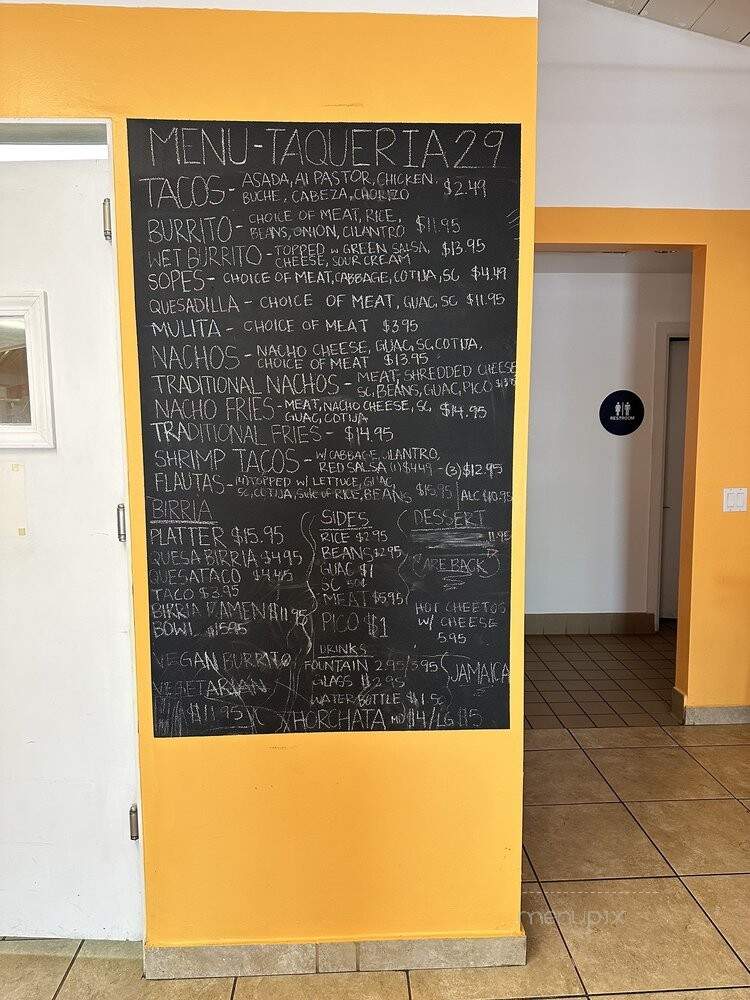 MENU-TAQUERIA 29
TACOS- ASADA, Al PASTOR, CHICKEN, $2.49
BUCHE, CABEZA, CHORIZO
BURRITO- CHOICE OF MEAT, RICE,
BEANS, ONION, CILANTRO $11.95
WET BURRITO - TOPPED w GREEN SALSA, $13.95
CHEESE, SOUR CREAM
SOPES- CHOICE OF MEAT, CABBAGE, COTIJA, SC $4.49
QUESADILLA - CHOICE OF MEAT, GUAC, SC $11.95
MULITA - CHOICE OF MEAT $3.95
NACHOS- NACHO CHEESE, GUAC, SC, COTIJA,
CHOICE OF MEAT $13.95
TRADITIONAL NACHOS- MEAT, SHREDDED CHEESE
SC, BEANS, GUAC, PICO
NACHO FRIES- MEAT, NACHO CHEESE, SC,
GUAC, COTIJA $14.95
TRADITIONAL FRIES- $14.95
SHRIMP TACOS- W/ CABBAGE, CILANTRO,
RED SALSA (1) $4.49 - (3) $12.95
FLAUTAS- (4) TOPPED W/ LETTUCE, GUAC,
SC, COTIJA, Side of RICE, BEANS $15.95 | ALC $10.95
BIRRIA
PLATTER $15.95
QUESA BIRRIA $4.95
QUESATACO $4.45
TACO $3.95
BIRRIA RAMEN $11.95
BOWL $15.95
VEGAN BURRITO
VEGETARIAN
$11.95
SIDES
RICE $2.95
BEANS $2.95
GUAC $1
SC 50¢
MEAT $5.95
PICO $1
DRINKS
FOUNTAIN 2.95/3.95
GLASS $2.95
WATER BOTTLE $1.50
HORCHATA MD $4/LG $5
DESSERT
11.95
ARE BACK
HOT CHEETOS
W/ CHEESE
5.95
JAMAICA
RESTROOM
menupix